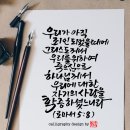 우리가 아직
죄인 되었을 때에
그리스도께서
우리를 위하여
죽으심으로
하나님께서
우리에 대한
자기의 사랑을
확증하셨느니라
(로마서 5:8)
calligraphy design by